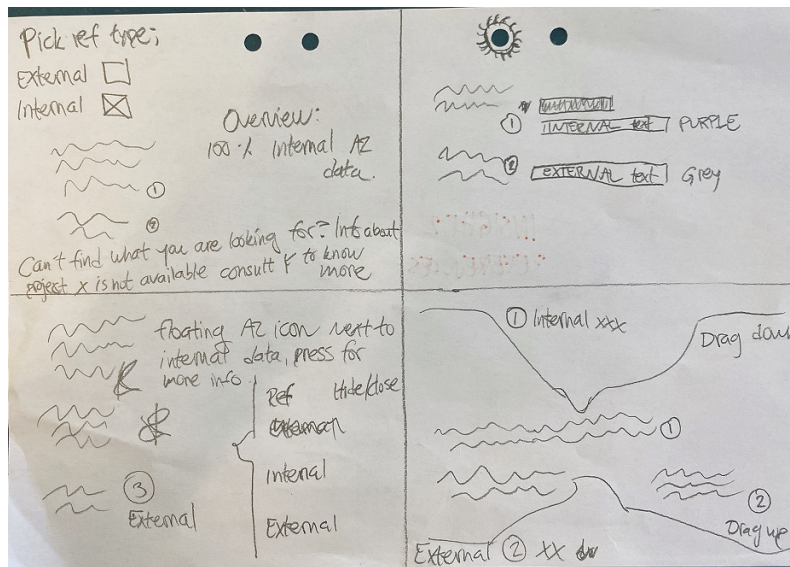 Pick ref type;
External
Internal
Overview:
100 % Internal AZ
data.
1
2
Can't find what you are looking for? Info about
project X is not available consult Y to know
more
1 INTERNAL text PURPLE
2 EXTERNAL text Grey
floating AZ icon next to
internal data, press for
more info
3
External
Ref Hide/close
External
Internal
External
1 Internal xxx
Drag down
1
2
Drag up
External 2 XX